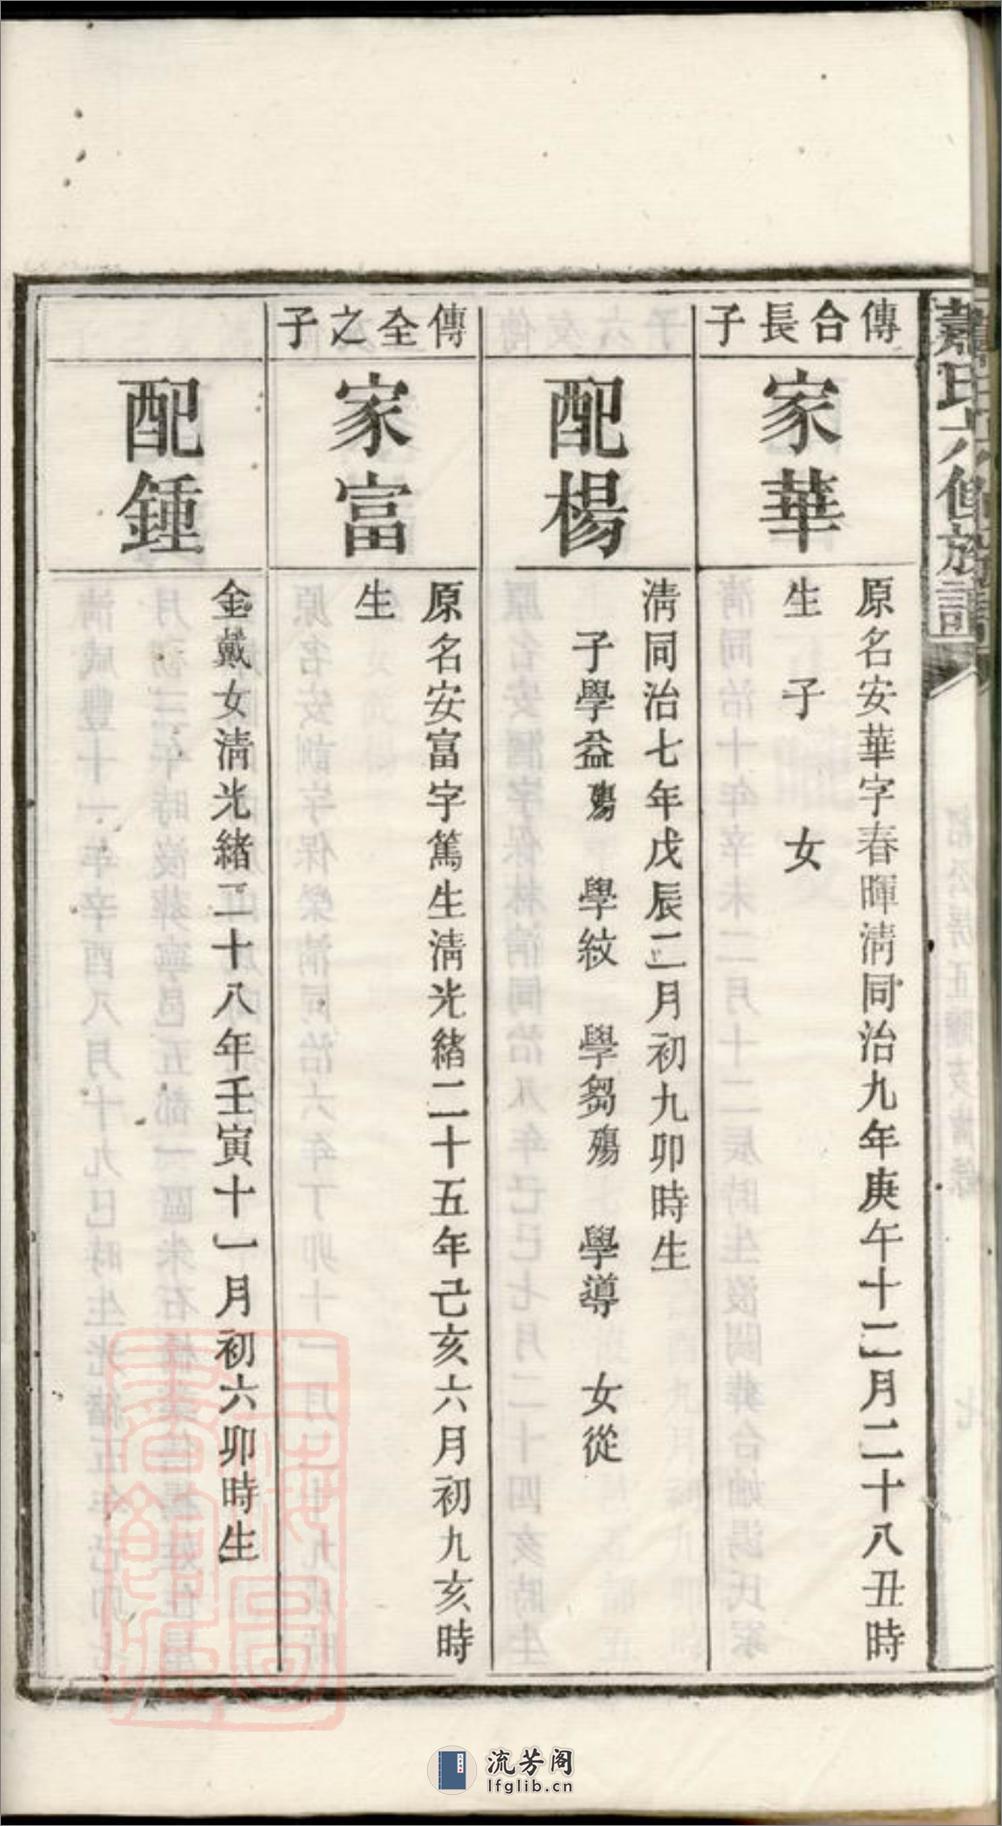 蕭氏六修族譜
傳合長子
家華
原名安華字春暉淸同治九年庚午十二月二十八丑時
生子 女
配楊
淸同治七年戊辰二月初九卯時生
子學益殤 學紋 學芻殤 學導 女從
傳全之子
家富
原名安富字篤生淸光緒二十五年己亥六月初九亥時
生
配鍾
金戴女淸光緒二十八年壬寅十一月初六卯時生
流芳阁
lfglib.cn